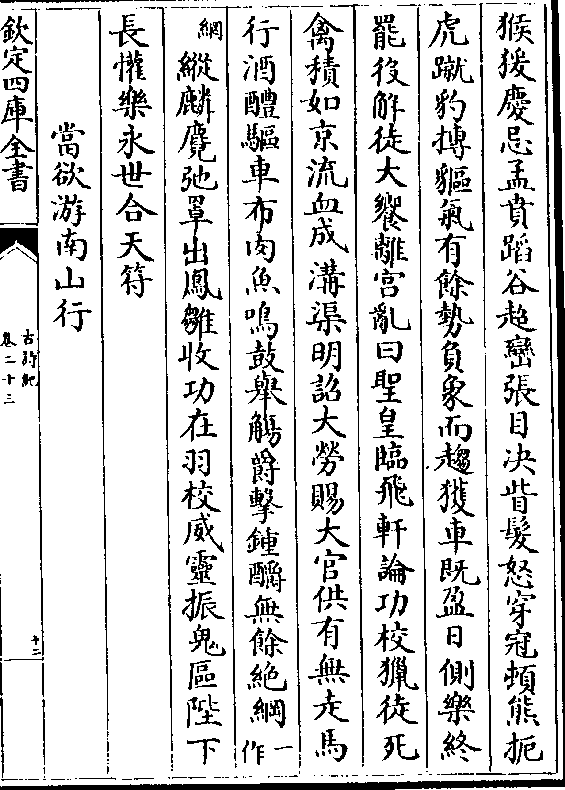 猴猨慶忌孟賁蹈谷超巒張目決眥髮怒穿冠頓熊扼
虎蹴豹搏貙氣有餘勢負象而趨獲車既盈日側樂終
罷役解徒大饗離宫亂曰聖皇臨飛軒論功校獵徒死
禽積如京流血成溝渠明詔大勞賜大官供有無走馬
行酒醴驅車布肉魚鳴鼓舉觴爵擊鍾釂無餘絶綱一作
網縱麟麑弛罩出鳳雛收功在羽校威靈振鬼區陛下
長懽樂永世合天符
當欲游南山行
欽定四庫全書
古詩紀
卷二十三
十二